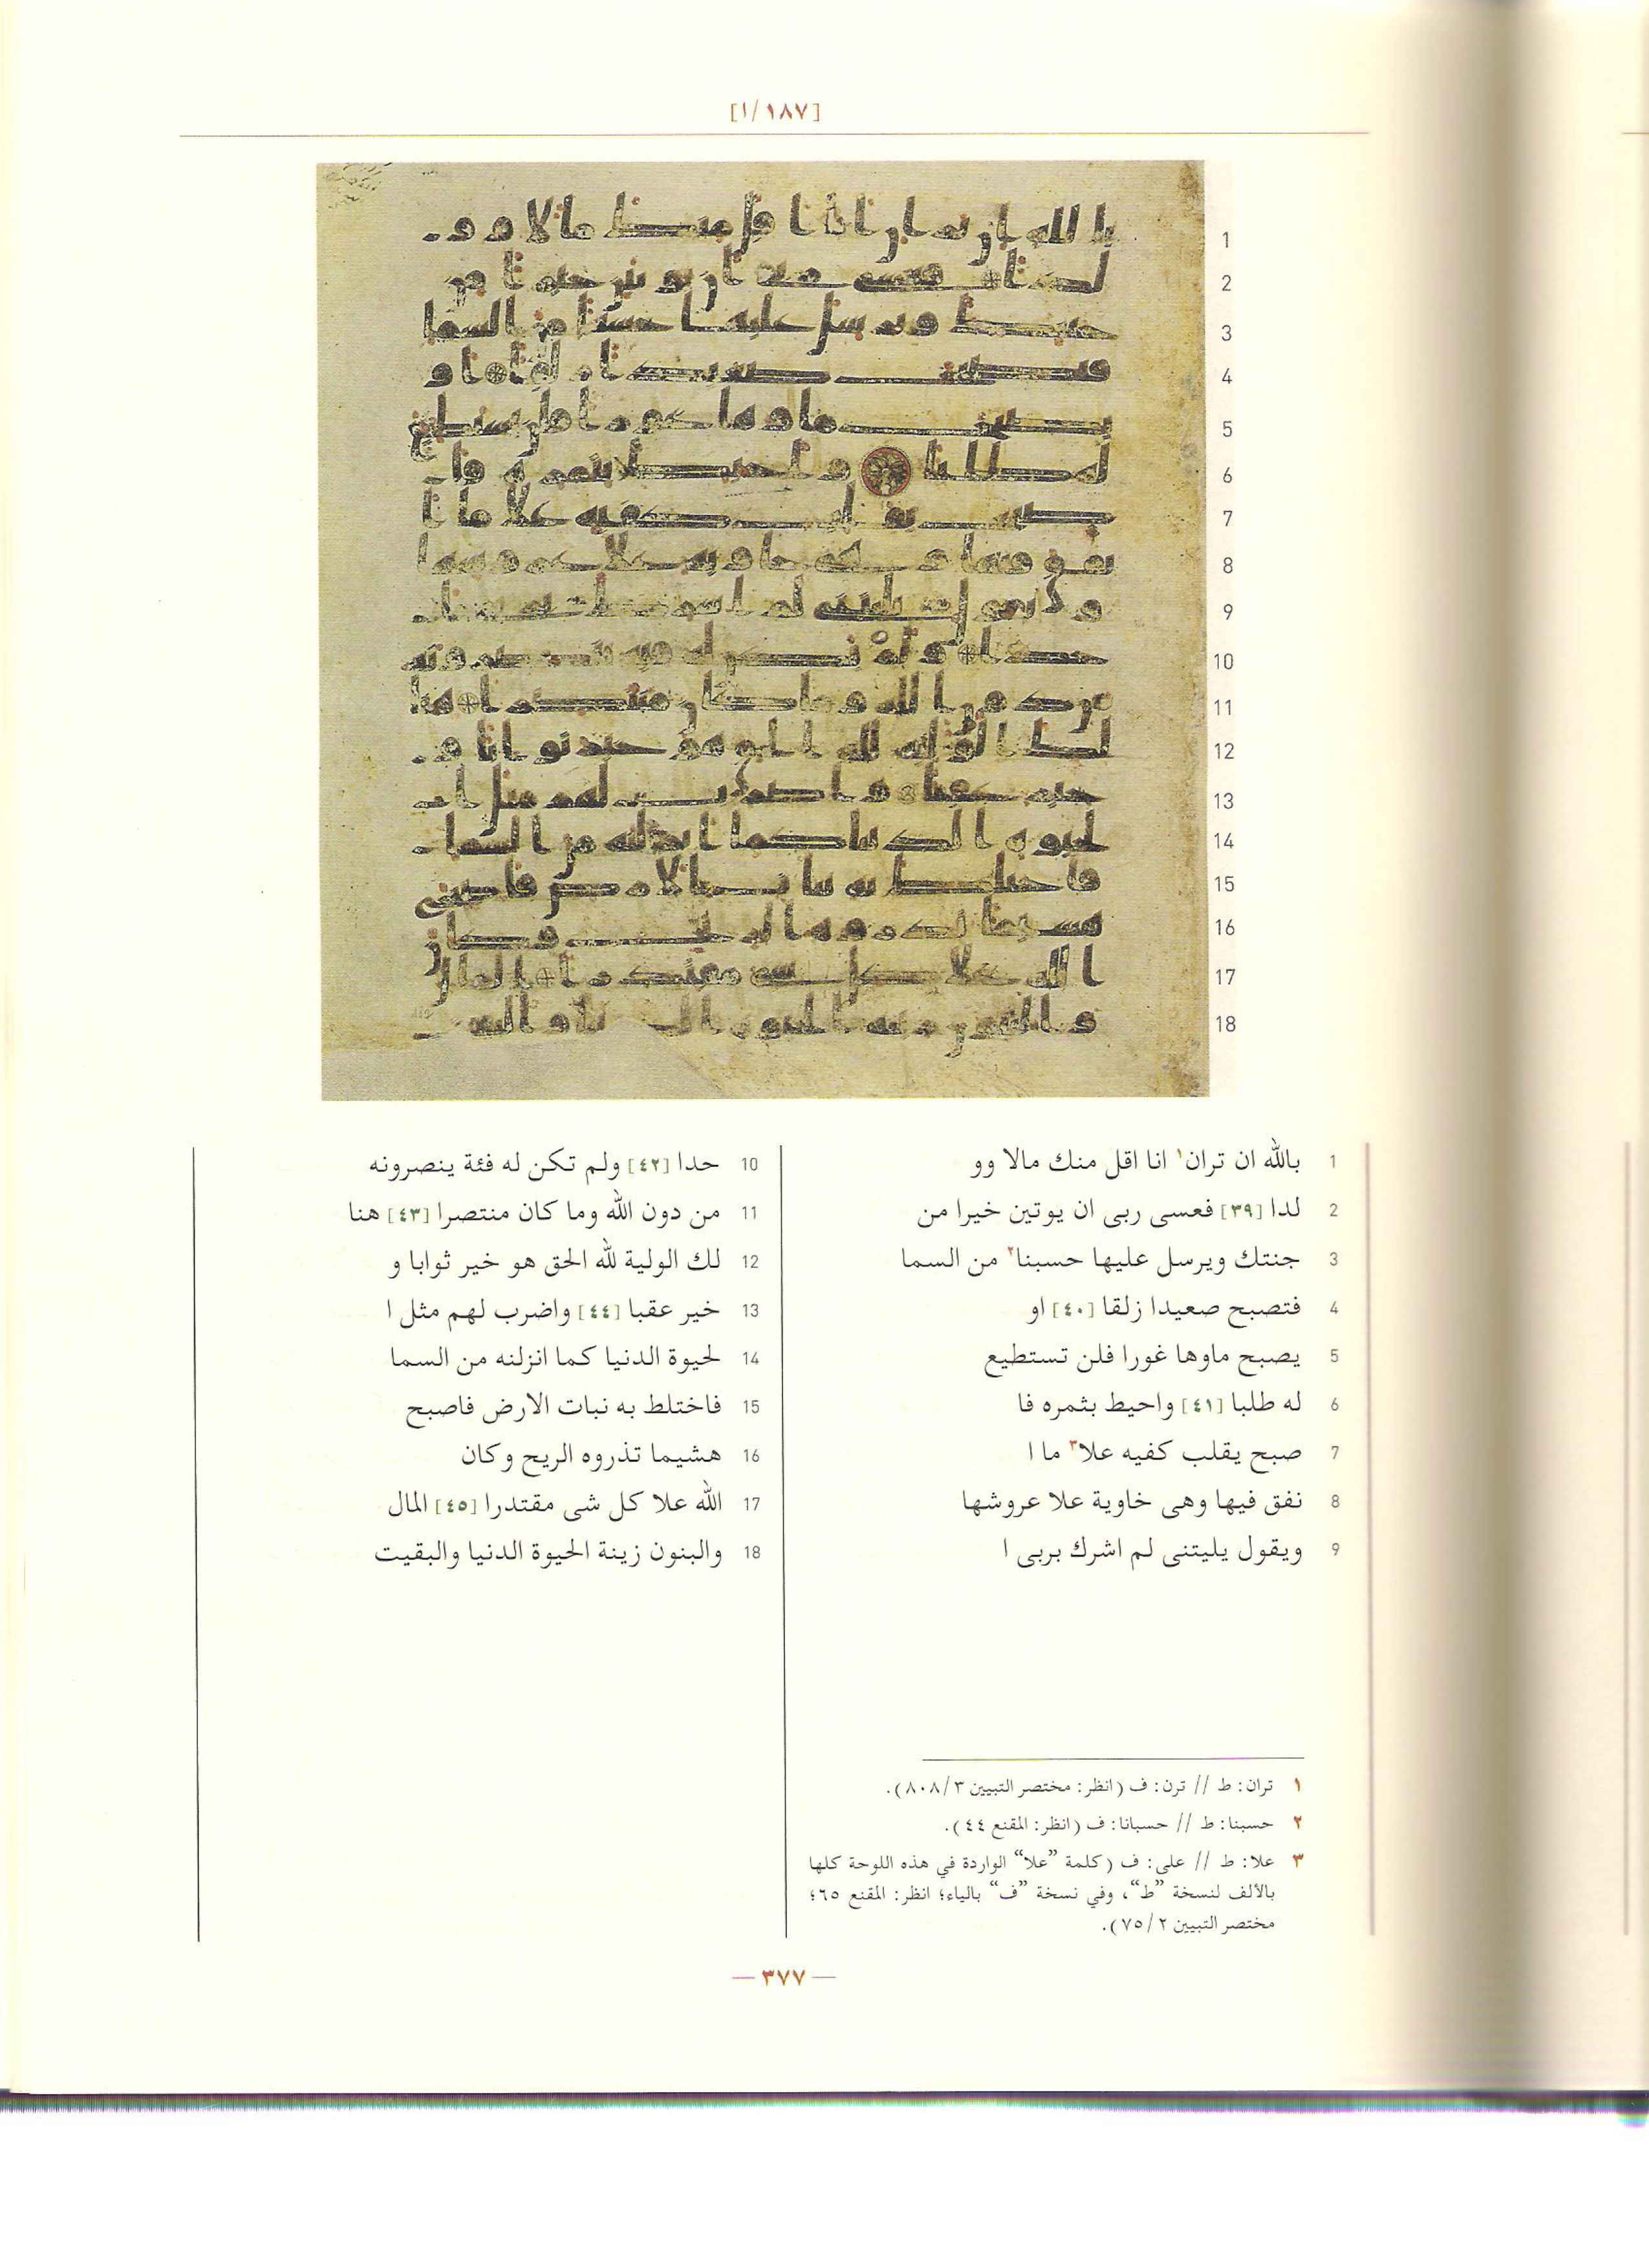 [١٨٧/ا]
1 بالله ان تران١ انا اقل منك مالا وو
2 لدا [٣٩] فعسى ربى ان يوتين خيرا من
3 جنتك ويرسل عليها حسبنا٢ من السما
4 فتصبح صعيدا زلقا [٤٠] او
5 يصبح ماوها غورا فلن تستطيع
6 له طلبا [٤١] واحيط بثمره فا
7 صبح يقلب كفيه علا٣ ما ا
8 نفق فيها وهى خاوية علا عروشها
9 ويقول يليتنى لم اشرك بربى ا
10 حدا [٤٢] ولم تكن له فئة ينصرونه
11 من دون الله وما كان منتصرا [٤٣] هنا
12 لك الولية لله الحق هو خير ثوابا و
13 خير عقبا [٤٤] واضرب لهم مثل ا
14 لحيوة الدنيا كما انزلنه من السما
15 فاختلط به نبات الارض فاصبح
16 هشيما تذروه الريح وكان
17 الله علا كل شى مقتدرا [٤٥] المال
18 والبنون زينة الحيوة الدنيا والبقيت
١ تران: ط // ترن: ف (انظر: مختصر التبيين ٨٠٨/٣).
٢ حسبنا: ط // حسبانا: ف (انظر: المقنع ٤٤).
٣ علا: ط // على: ف (كلمة ”علا“ الواردة في هذه اللوحة كلها
بالألف لنسخة ”ط“، وفي نسخة ”ف“ بالياء؛ انظر: المقنع ٦٥؛
مختصر التبيين ٧٥/٢).
— ٣٧٧ —